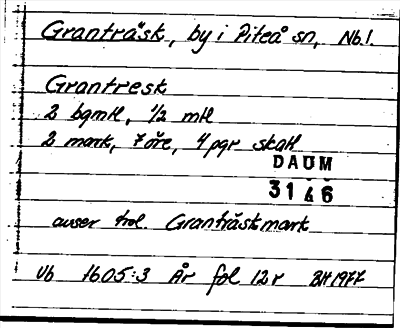 Granträsk, by i Piteå sn, Nb.l.
Grantresk
2 bgmtl, 1/2 mtl
2 mark, 7 öre, 4 pgr skatt
DAUM
3146
avser trol. Granträskmark
Vb 1605:3 År fol 12r BH 1977